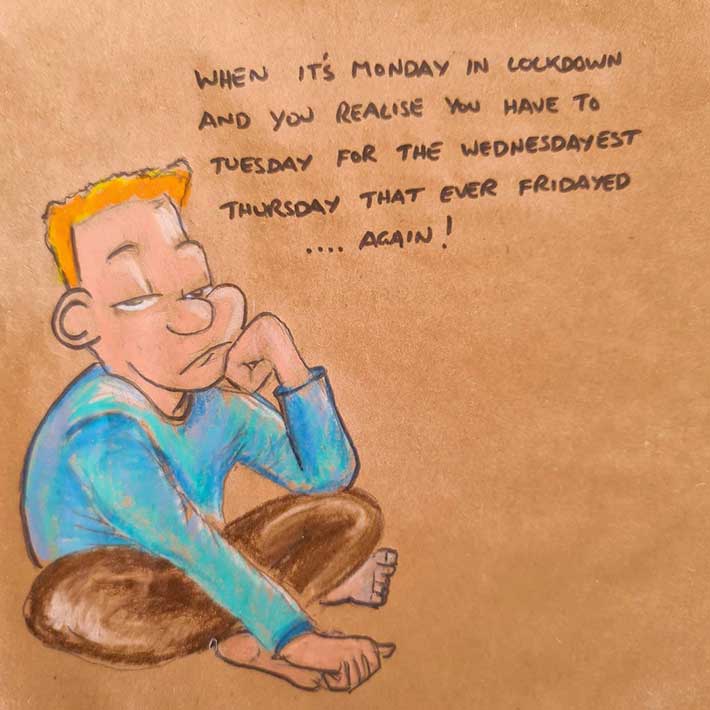 WHEN IT'S MONDAY IN LOCKDOWN
AND YOU REALISE YOU HAVE TO
TUESDAY FOR THE WEDNESDAYEST
THURSDAY THAT EVER FRIDAYED
.... AGAIN!